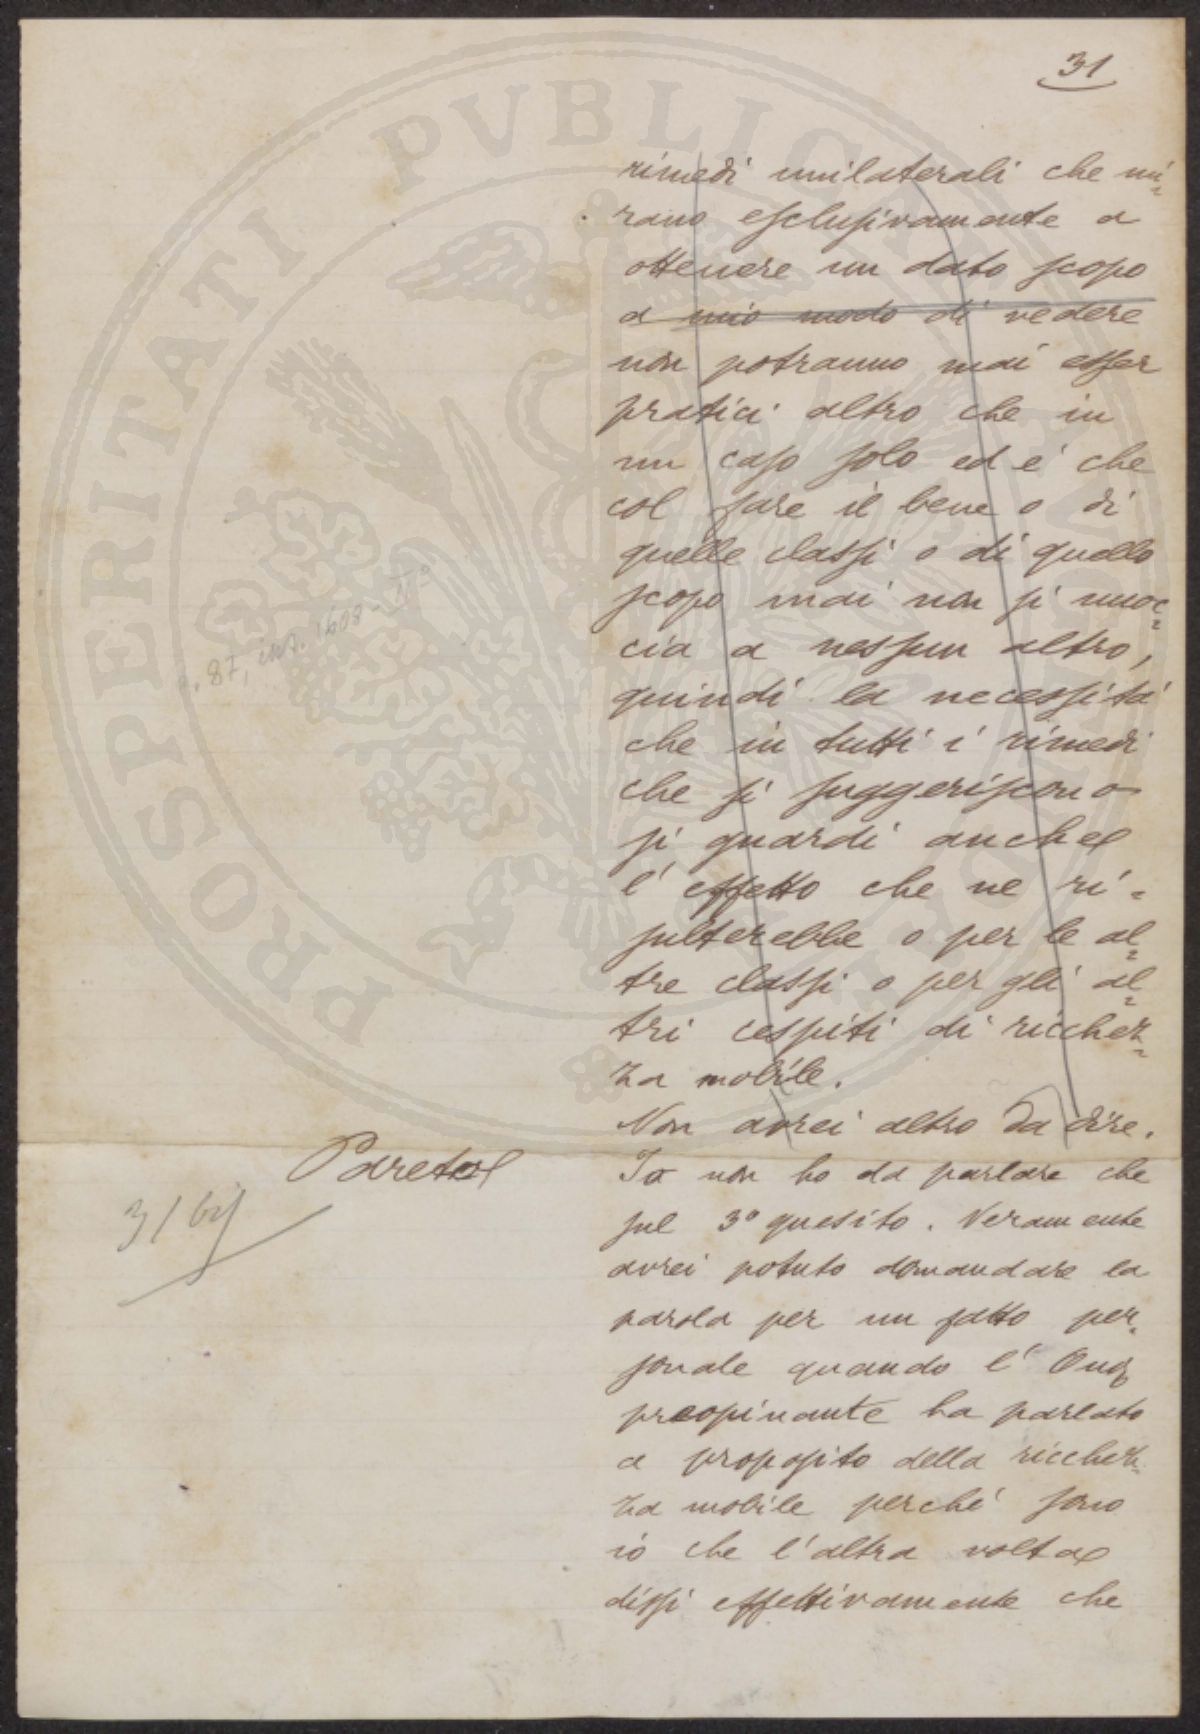 31
rimedi unilaterali che mi=
rano esclusivamente a
ottenere un dato scopo
a mio modo di vedere
non potranno mai esser
pratici altro che in
un caso solo ed é che
col fare il bene o di
quelle classi o di quello
scopo mai non si nuoc=
cia a nessun altro,
quindi la necessitá
che in tutti i rimedi
che si suggeriscono
si guardi anche
l'effetto che ne ri=
sulterebbe o per le al=
tre classi o per gli al=
tri cespiti di ricchez=
za mobile.
Non avrei altro da dire.
Pareto
Io non ho da parlare che
31 bis
sul 3º quesito. Veramente
avrei potuto domandare la
parola per un fatto per=
sonale quando l'Onor
preopinante ha parlato
a proposito della ricchez=
za mobile perché sono
io che l'altra volta
dissi effettivamente che
87, int. 1608-IIº
PROSPERITATI PVBLICAE AVGENDAE